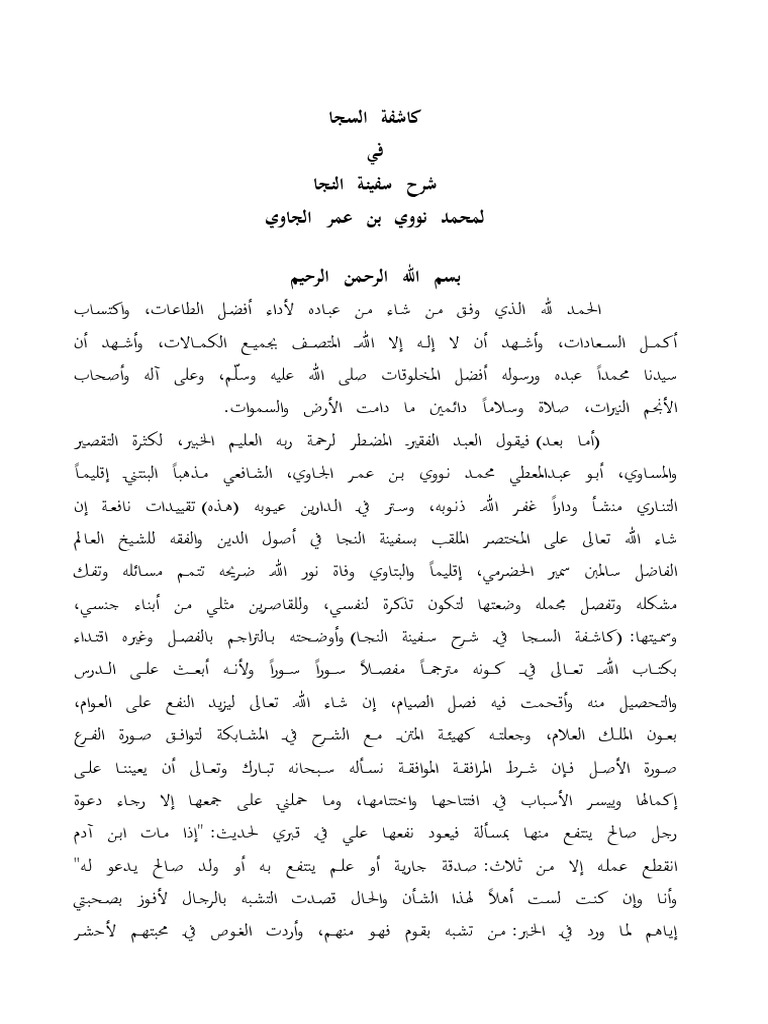 كاشفة السجا
في
شرح سفينة النجا
لمحمد نووي بن عمر الجاوي
بسم الله الرحمن الرحيم
الحمد لله الذي وفق من شاء من عباده لأداء أفضل الطاعات، واكتساب
أكمل السعادات، وأشهد أن لا إله إلا الله المتصف بجميع الكمالات، وأشهد أن
سيدنا محمداً عبده ورسوله أفضل المخلوقات صلى الله عليه وسلّم، وعلى آله وأصحاب
الأنجم النيرات، صلاة وسلاماً دائمين ما دامت الأرض والسموات.
(أما بعد) فيقول العبد الفقير المضطر لرحمة ربه العليم الخبير، لكثرة التقصير
والمساوي، أبو عبدالمعطي محمد نووي بن عمر الجاوي، الشافعي مذهباً البنتني إقليماً
التناري منشأ وداراً غفر الله ذنوبه، وستر في الدارين عيوبه (هذه) تقييدات نافعة إن
شاء الله تعالى على المختصر الملقب بسفينة النجا في أصول الدين والفقه للشيخ العالم
الفاضل سالمبن سمير الحضرمي، إقليماً والبتاوي وفاة نور الله ضريحه تتمم مسائله وتفك
مشكله وتفصل مجمله وضعتها لتكون تذكرة لنفسي، وللقاصرين مثلي من أبناء جنسي،
وسميتها: (كاشفة السجا في شرح سفينة النجا) وأوضحته بالتراجم بالفصل وغيره اقتداء
بكتاب الله تعالى في كونه مترجماً مفصلاً سوراً سوراً ولأنه أبعث على الدرس
والتحصيل منه وأقحمت فيه فصل الصيام، إن شاء الله تعالى ليزيد النفع على العوام،
بعون الملك العلام، وجعلته كهيئة المتن مع الشرح في المشابكة لتوافق صورة الفرع
صورة الأصل فإن شرط المرافقة الموافقة نسأله سبحانه تبارك وتعالى أن يعيننا على
إكمالها وييسر الأسباب في افتتاحها واختتامها، وما حملني على جمعها إلا رجاء دعوة
رجل صالح ينتفع منها بمسألة فيعود نفعها علي في قبري لحديث: "إذا مات ابن آدم
انقطع عمله إلا من ثلاث: صدقة جارية أو علم ينتفع به أو ولد صالح يدعو له"
وأنا وإن كنت لست أهلاً لهذا الشأن والحال قصدت التشبه بالرجال لأفوز بصحبتي
إياهم لما ورد في الخبر: من تشبه بقوم فهو منهم، وأردت الغوص في محبتهم لأحشر